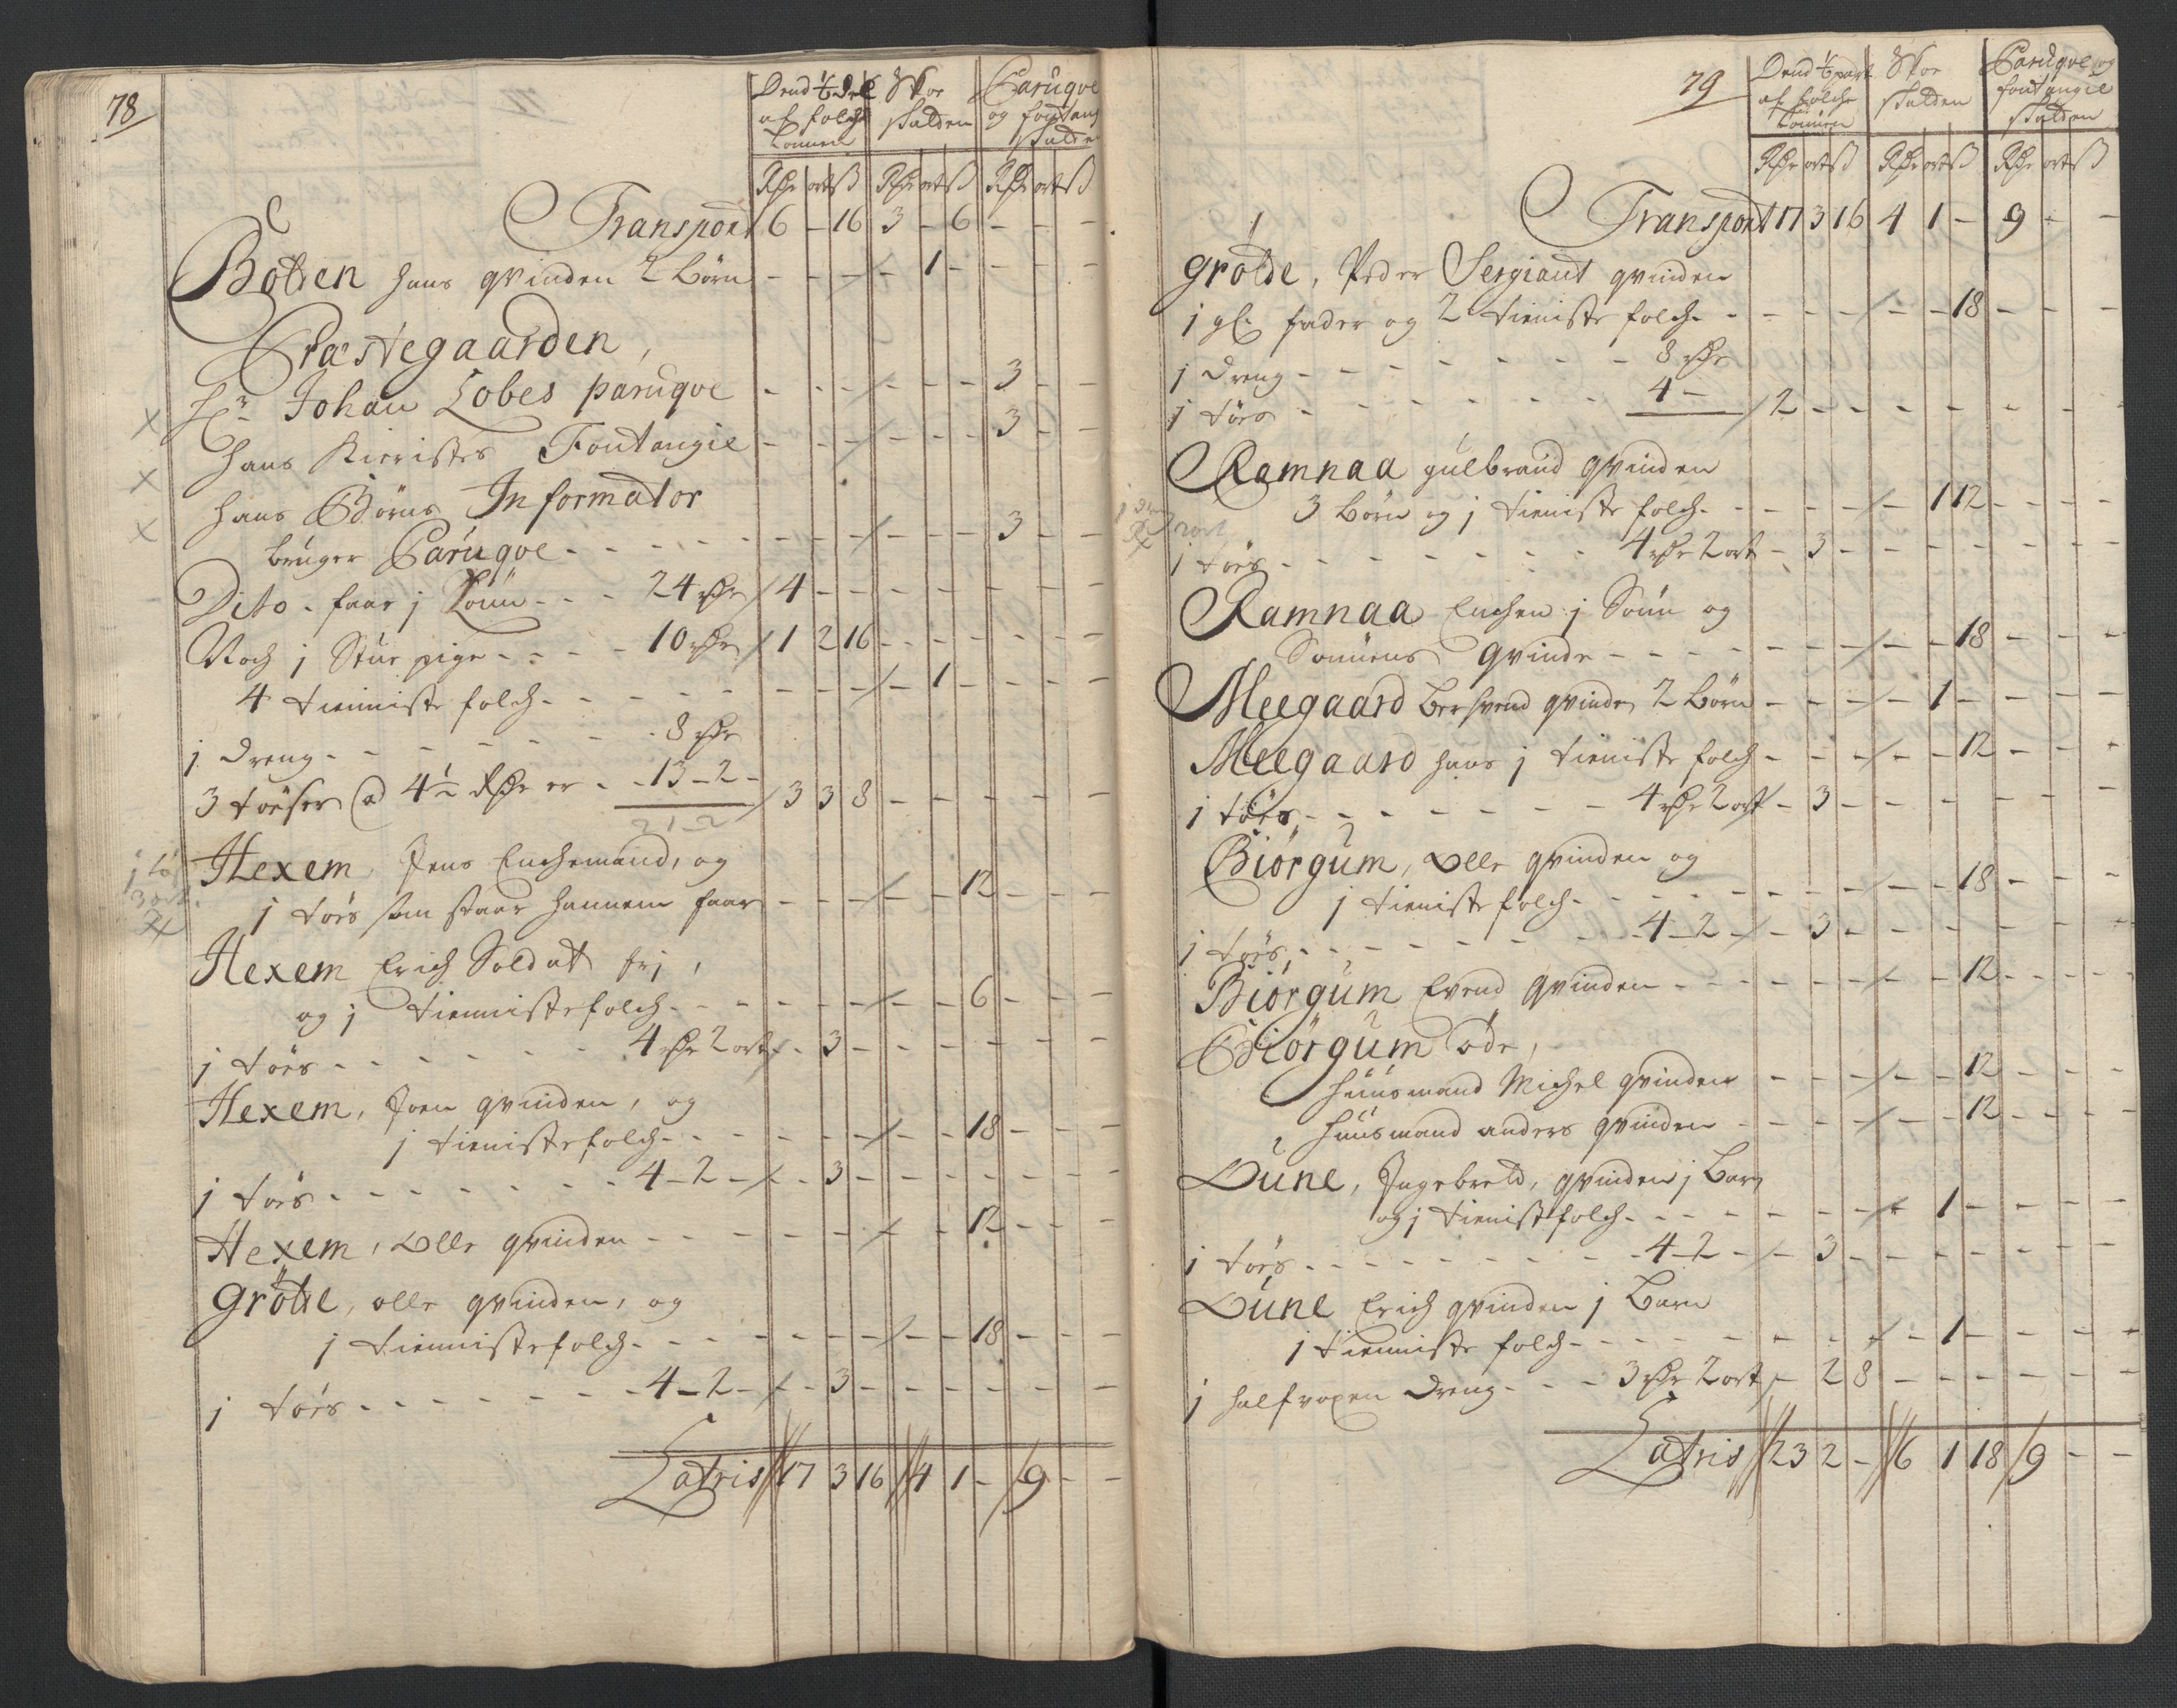 78
Dend 1/6 deel af folche Lønnen | Skoe skatden | Paruqve og fontang skatden
Rdr ort ß | Rdr ort ß | Rdr ort ß
Transport 6 - 16 3 - 6 - - -
Botten hans qvinden 2 børn - - - - 1 - - - -
Præstegaarden,
Hr. Johan Lobes paruqve - - - - - - 3 - -
hans Kieristes Fontangie - - - - - - 3 - -
hans Börns Informator
bruger Paruqve - - - - - - 3 - -
Dito - faar j Lönn - - - 24 Rdr 4 - - - - - - - -
Noch j Stue pige - - - - 10 Rdr 1 2 16 - - - - - -
4 tienniste folch - - - - - 1 - - - -
j dreng - - - - - 8 Rdr
3 tøser a 4½ Rdr er - - 13 - 2 - 3 3 8 - - - - - -
21 - 2
j tøs
3 ort
Hexem Jens Enchemand, og
j tøs som staar hannem faar - - - - - 12 - - -
Hexem Erich Soldat frj,
og j tiennistefolch - - - - - 6 - - -
j tøes - - - - - 4 Rdr 2 ort - 3 - - - - - - -
Hexem, Joen qvinden, og
j tienistefolch - - - - - 18 - - -
j tøes - - - - - 4 - 2 - - 3 - - - - - - -
Hexem, Olle qvinden - - - - - 12 - - -
Grötte, olle qvinden, og
j tiennistefolch - - - - - 18 - - -
j tøes - - - - - 4 - 2 - - 3 - - - - - - -
Latris 17 3 16 4 1 - 9 - -
79
Dend 1/6 part af folche Lønnen | Skoe skatden | Paruqve og fontangie skatden
Rdr ort ß | Rdr ort ß | Rdr ort ß
Transport 17 3 16 4 1 - 9 - -
grötde, Peder Sergiant qvinden
j gl. fader og 2 tieniste folch - - - - - 18 - - -
j dreng - - - - - 8 Rdr
j tøes - - - - - 4 - 2 - - - - - - - -
Ramnaa gulbrand qvinden
3 børn og j tieniste folch - - - - 1 12 - - -
j tøes - - - - - 4 Rdr 2 ort - 3 - - - - - - -
Ramnaa Enchen j Sønn og
Sønnens qvinde - - - - - 18 - - -
Meegaard qvinden 2 børn - - - - 1 - - - -
Meegaard hans j tieniste folch - - - - - 12 - - -
j tøes - - - - - 4 Rdr 2 ort - 3 - - - - - - -
Biörgum, Olle qvinden og
j tienistefolch - - - - - 18 - - -
j tøes - - - - - 4 - 2 - - 3 - - - - - - -
Biörgum Evend qvinden - - - - - 12 - - -
Biörgum øde,
huusmand Michel qvinden - - - - - 12 - - -
huusmand anders qvinden - - - - - 12 - - -
Oune, Ingebreld, qvinden j barn
og j tienistfolch - - - - 1 - - - -
j tøes - - - - - 4 - 2 - - 3 - - - - - - -
Oune Erich qvinden j barn
j tienniste folch - - - - 1 - - - -
j halfvoxen dreng - - - 3 Rdr 2 ort - 2 8 - - - - - -
Latris 23 2 - 6 1 18 9 - -